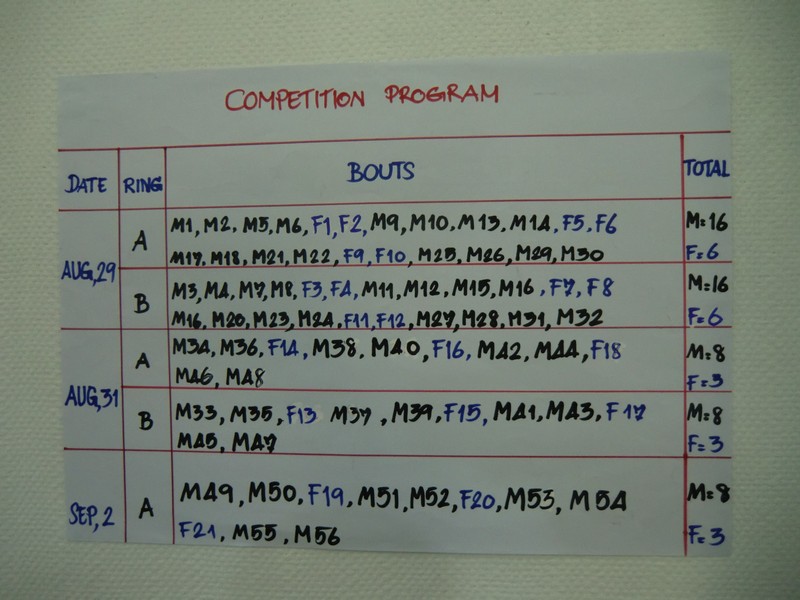 COMPETITION PROGRAM
DATE RING BOUTS TOTAL
AUG,29
A
M1, M2, M5, M6, F1, F2, M9, M10, M13, M14, F5, F6
M=16
M17, M18, M21, M22, F9, F10, M25, M26, M29, M30
F=6
B
M3, M4, M7, M8, F3, F4, M11, M12, M15, M16, F7, F8
M=16
M16, M20, M23, M24, F11, F12, M27, M28, M31, M32
F=6
AUG,31
A
M34, M36, F14, M38, M40, F16, M42, M44, F18
M=8
M46, M48
F=3
B
M33, M35, F13 M37, M39, F15, M41, M43, F17
M=8
M45, M47
F=3
SEP,2
A
M49, M50, F19, M51, M52, F20, M53, M54
M=8
F21, M55, M56
F=3